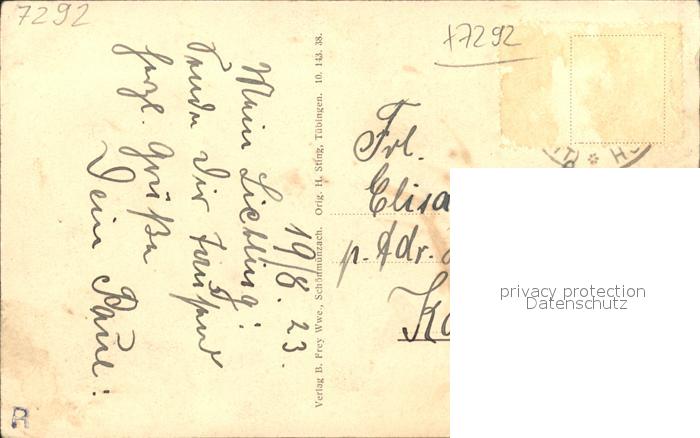 7292
x7292
19/8. 23.
Mein Liebling!
Sende Dir tausend
herzl. Grüße
Dein Paul!
Verlag B. Frey Wwe., Schönmünzach. Orig. H. Sting, Tübingen. 10. 143. 38.
Frl.
Elisa
p. Adr.
Ka
privacy protection
Datenschutz
R